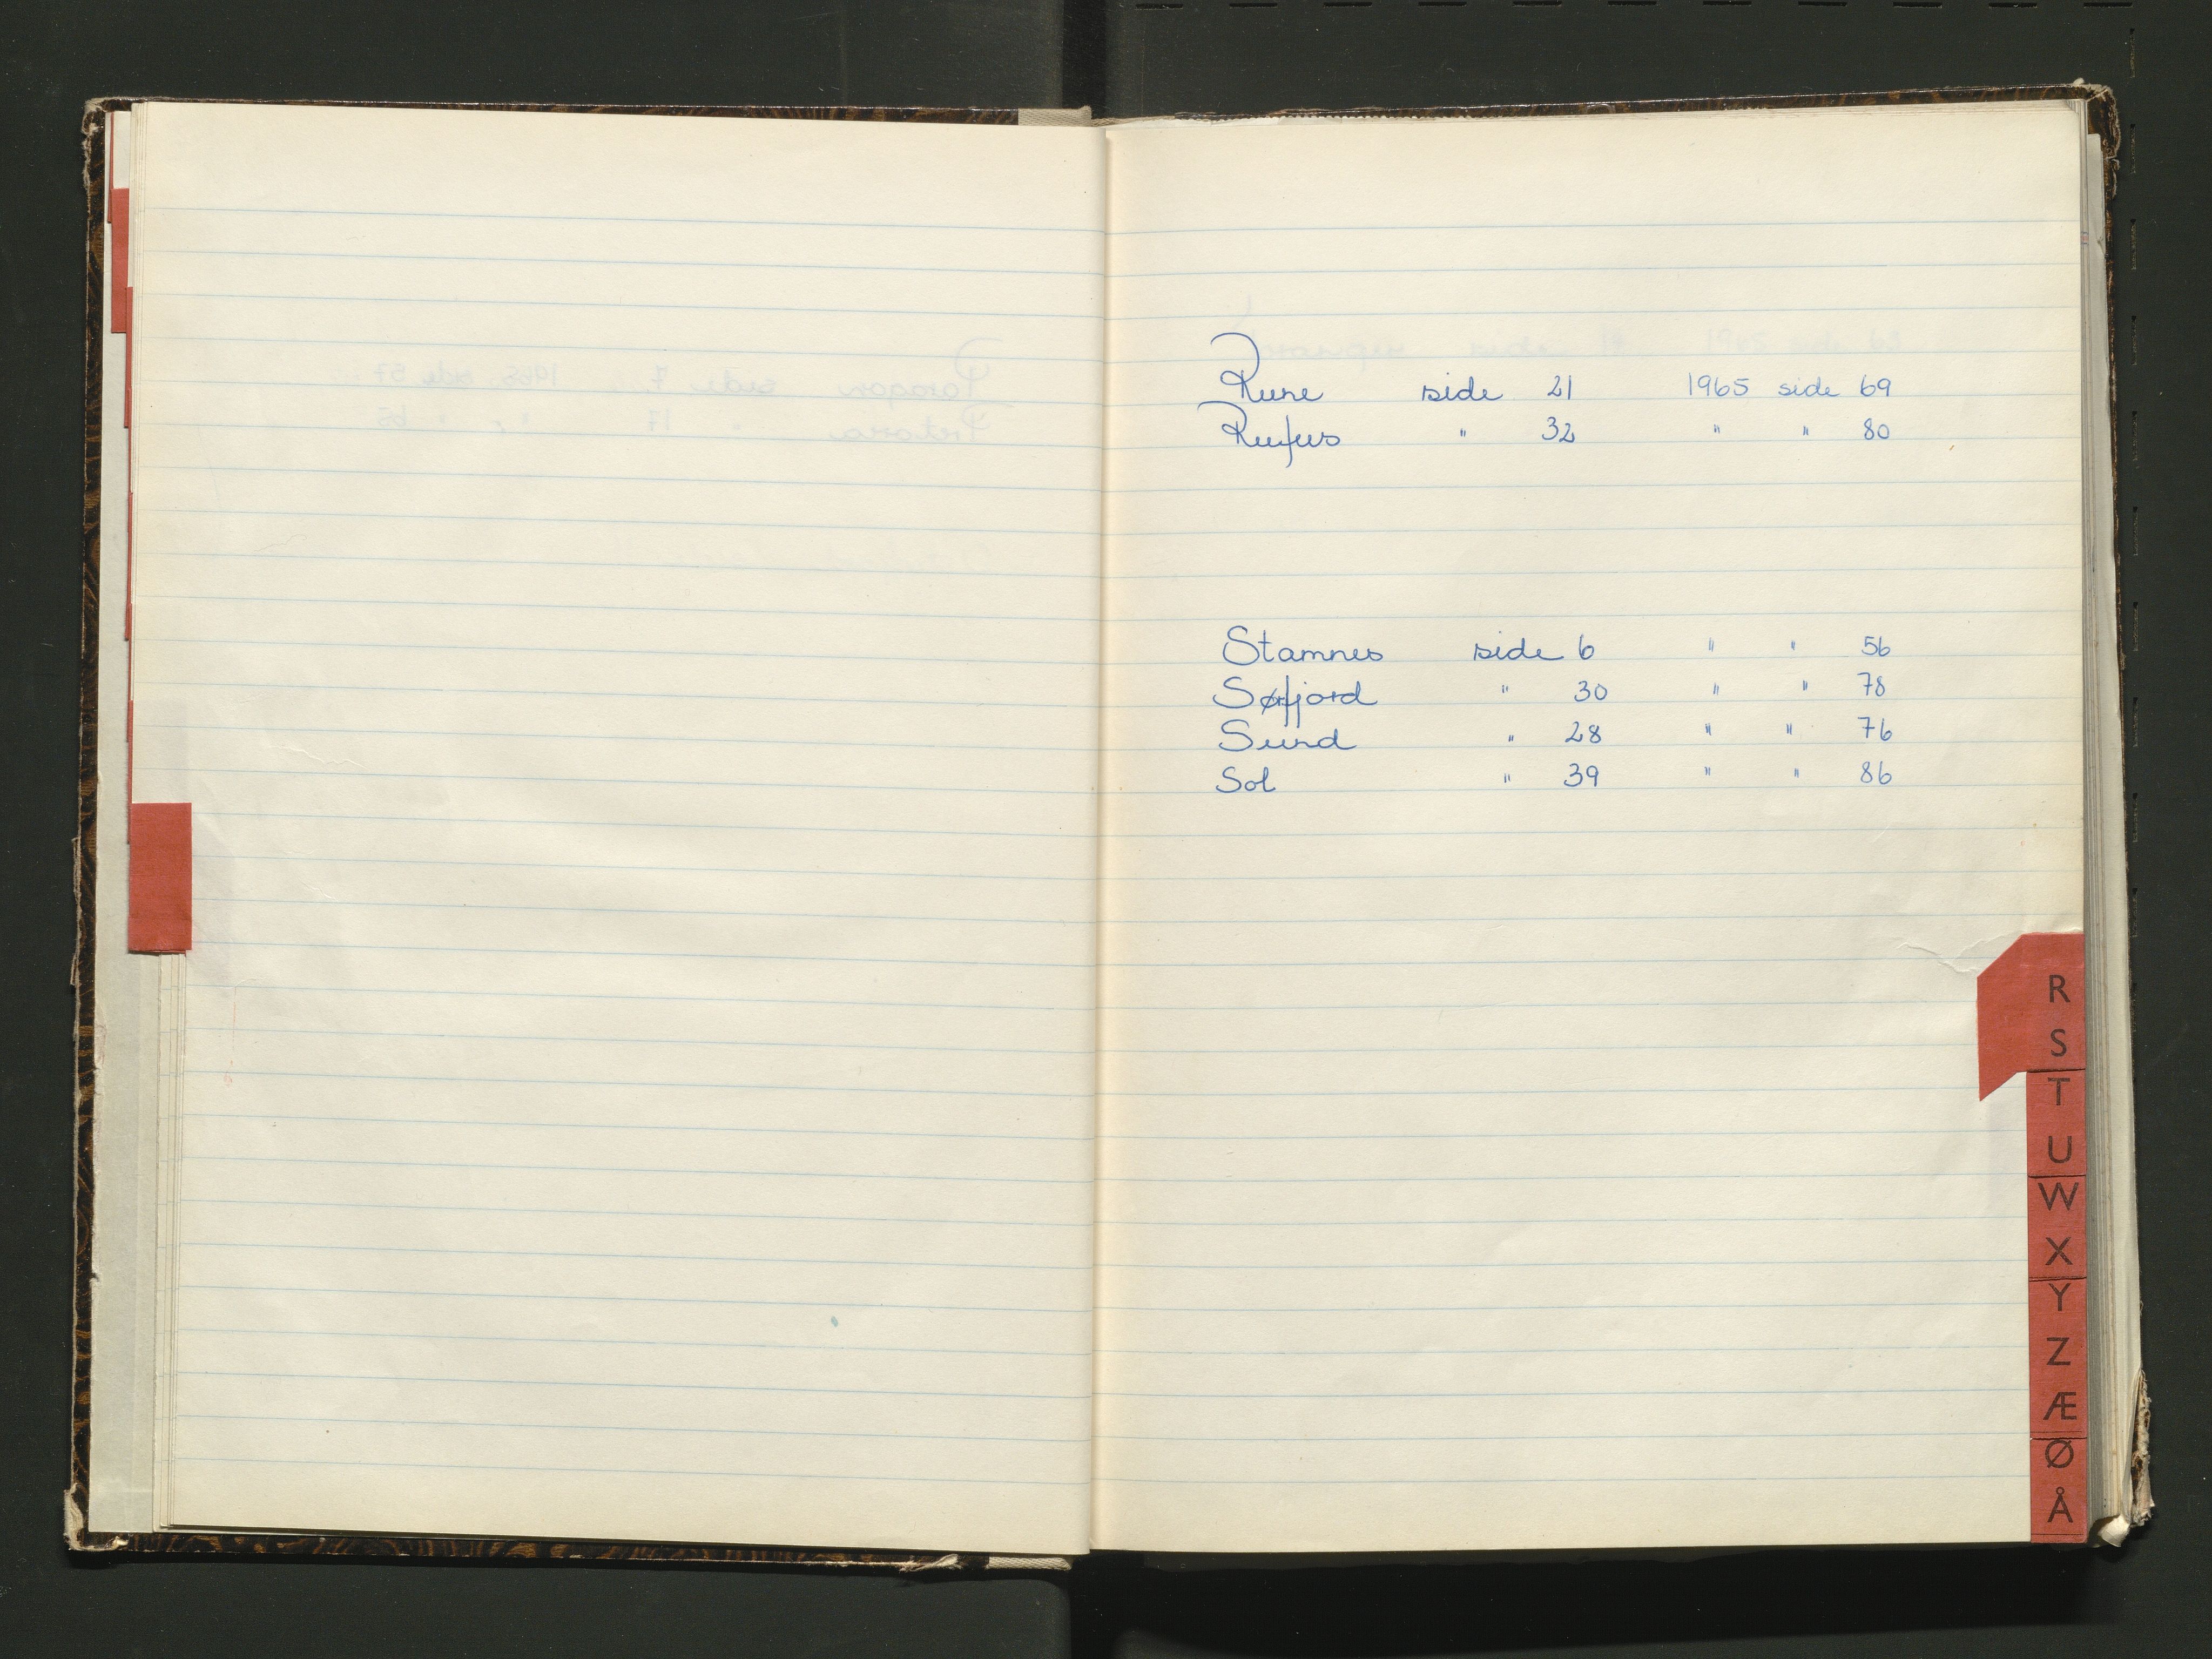 Rune side 21 1965 side 69
Rufus " 32 " " 80
Stamnes side 6 " " 56
Sørfjord " 30 " " 78
Sund " 28 " " 76
Sol " 39 " " 86
R
S
T
U
W
X
Y
Z
Æ
Ø
Å